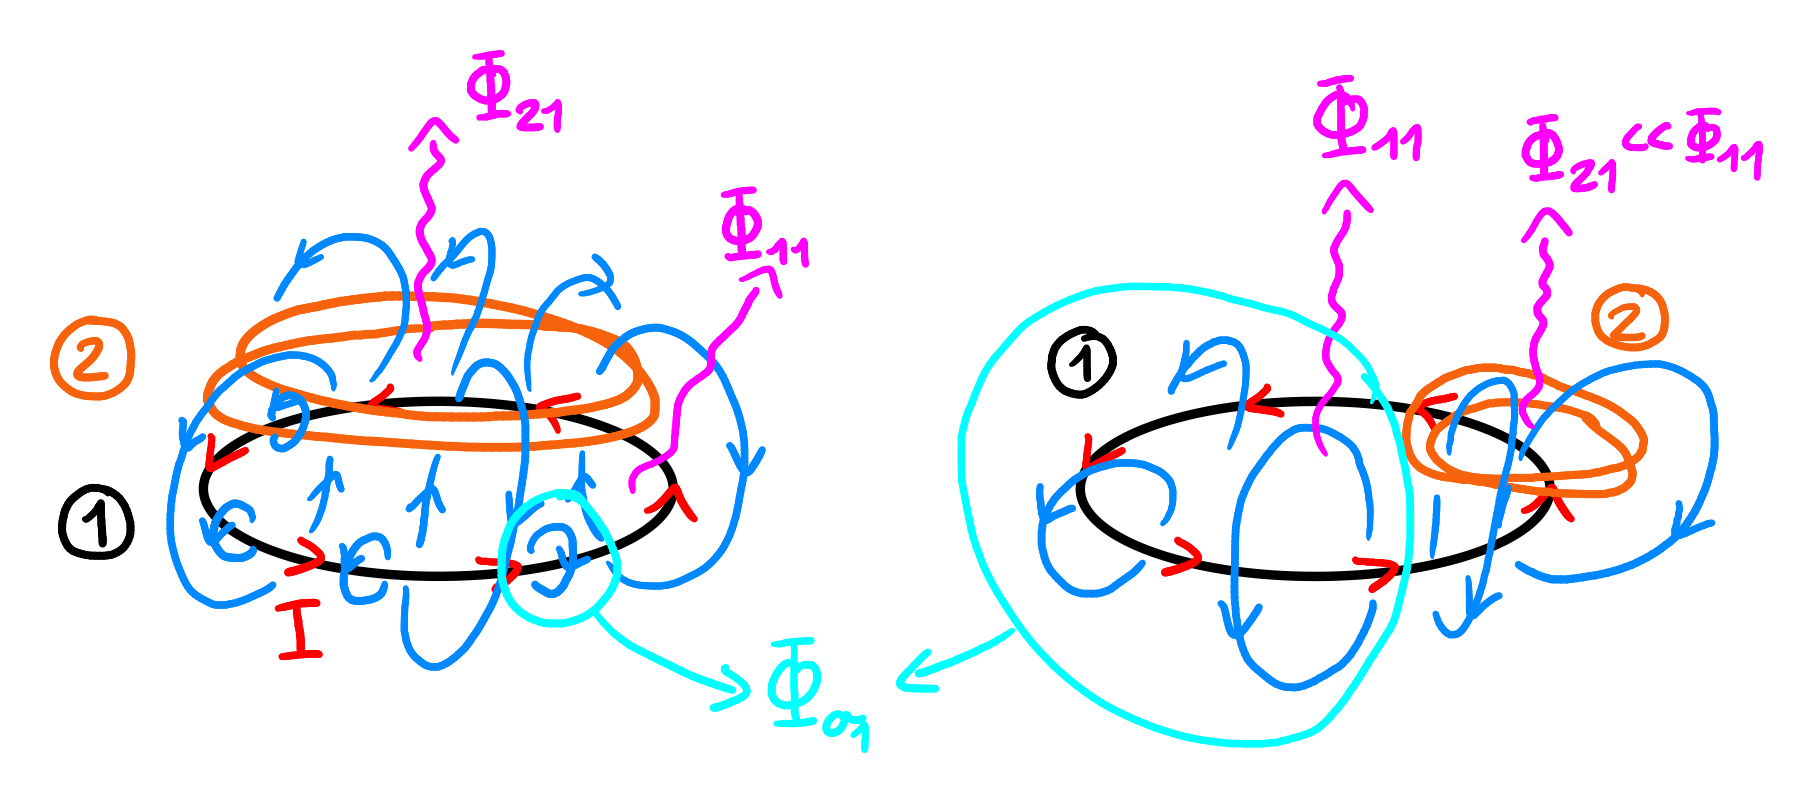 Φ₂₁
Φ₁₁
②
①
I
Φσ₁
Φ₁₁
Φ₂₁ << Φ₁₁
①
②